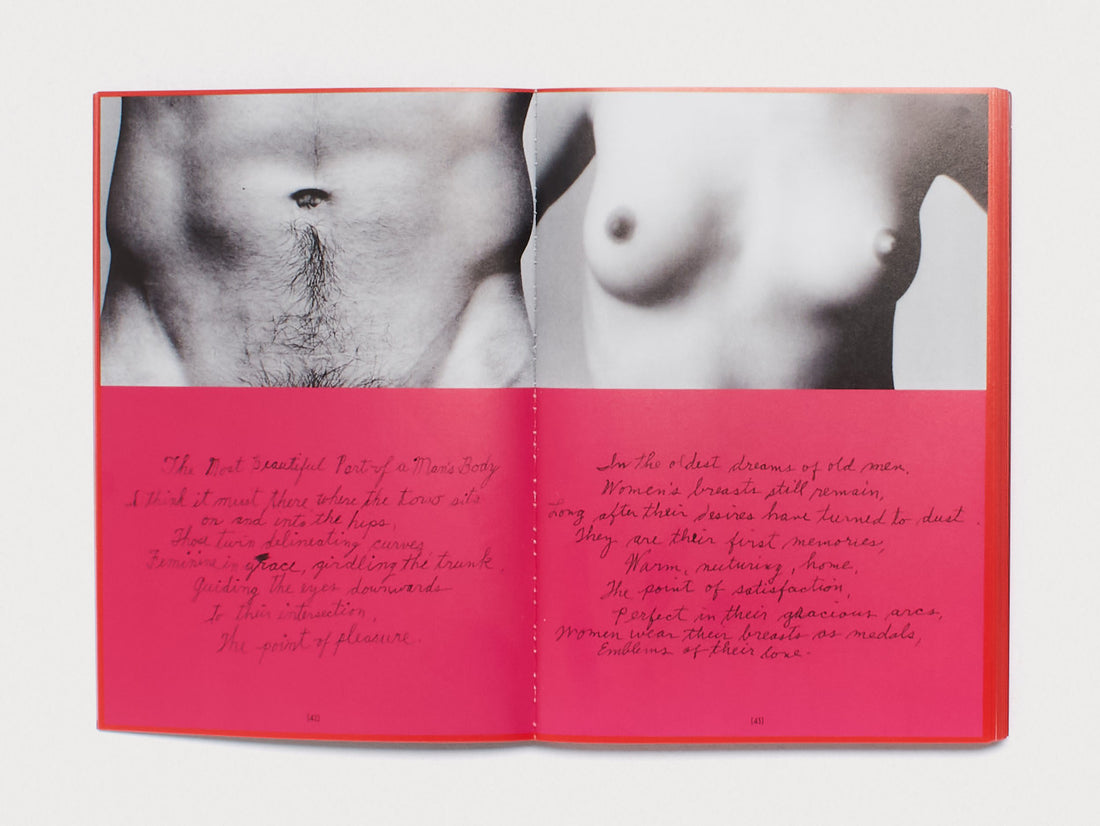 The Most Beautiful Part of a Man's Body
I think it must there where the torso sits
on and into the hips,
Those twin delineating curves
Feminine in grace, girdling the trunk
Guiding the eyes downwards
To their intersection,
The point of pleasure.
(42)
In the oldest dreams of old men.
Women's breasts still remain,
Long after their desires have turned to dust.
They are their first memories,
Warm, nuturing, home,
The point of satisfaction,
Perfect in their gracious arcs,
Women wear their breasts as medals,
Emblems of their love.
(43)